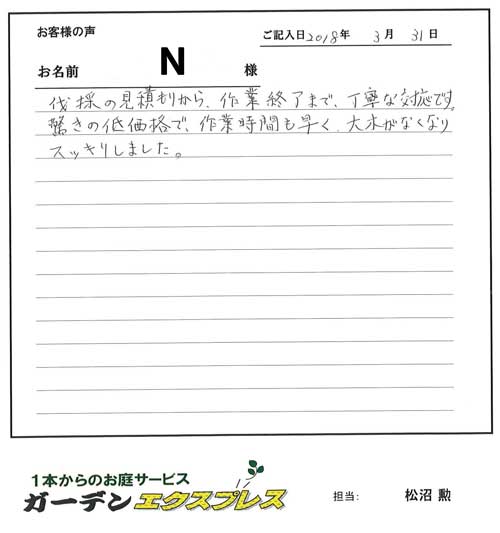 お客様の声
ご記入日 2018年 3月 31日
お名前 N 様
伐採の見積もりから、作業終了まで、丁寧な対応です。
驚きの低価格で、作業時間も早く、大木がなくなり
スッキリしました。
1本からのお庭サービス
ガーデンエクスプレス
担当: 松沼 勲